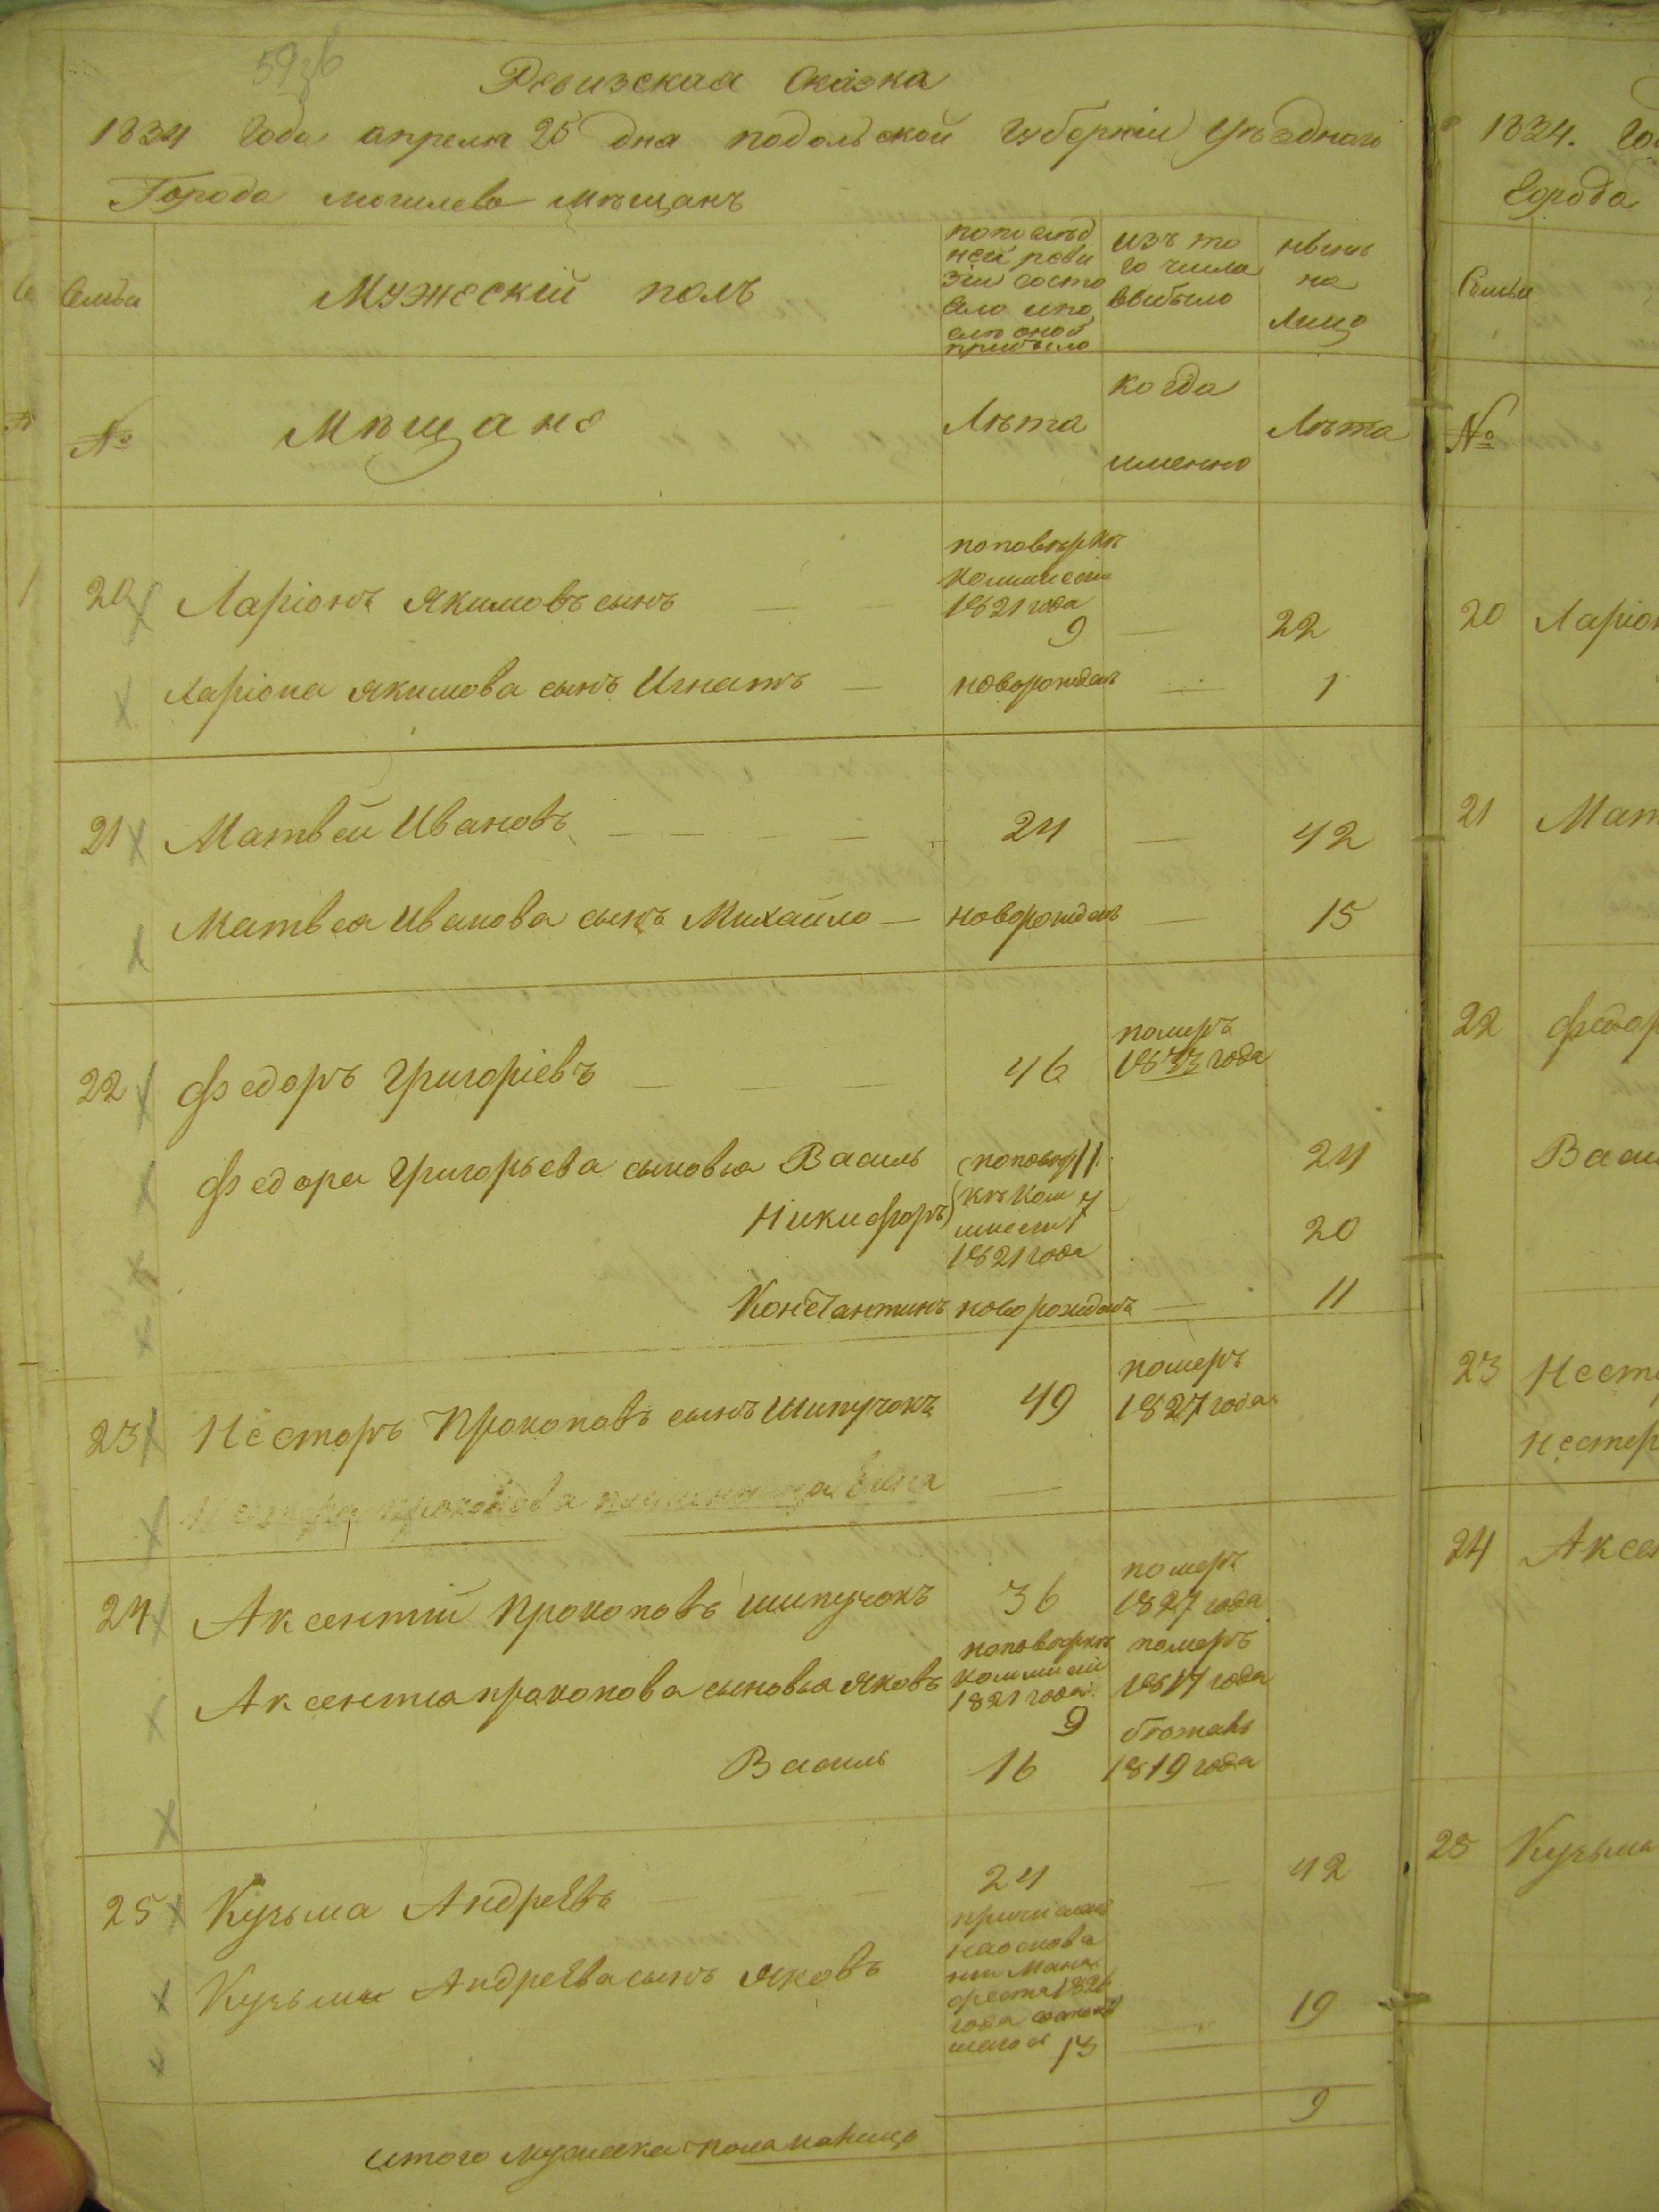 Ревизская Сказка
1834 Года апреля 25 дня подольской губернии Уѣзднаго
Города могилева мѣщанъ
Семьи
Мужескій полъ
попослѣд
ней реви
зіи состо
яло ипо
слѣ оной
прибыло
изъ то
го числа
выбыло
нынѣ
на
Лицо
№
Мѣщане
Лѣта
когда
именно
Лѣта
20 Ларіонъ Якимовъ сынъ
поповѣркѣ
коммисіи
1821 года
9 — 22
Ларіона якимова сынъ Игнатъ — новорожденъ — 1
21 Матвѣй Ивановъ — 24 — 42
Матвѣя Иванова сынъ Михайло — новорожденъ — 15
22 Федоръ Григоріевъ — 46
померъ
1833 года
Федора Григорьева сыновья Василь
поповѣр 11
24
Никифоръ
кѣ Ком 7
мисіи
1821 года
20
Константинъ новорожденъ — 11
23 Несторъ Прокоповъ сынъ Шипучокъ 49
померъ
1827 года
24 Аксентій Прокоповъ шипучокъ 36
померъ
1827 года
Аксентія прокопова сыновья Яковъ
поповѣркѣ
коммисіи
1821 года
9
померъ
года
Василь 16
1819 года
25 Кузьма Андреевъ — 24 — 42
Кузьмы Андреева сынъ Яковъ
причисленъ
наоснова
ніи Мани
феста 1826
года
13 — 19
итого мужеска пола налицо 9
1834. Го
Города
Семьи
№
20 Ларіон
21 Мат
22 Федор
Васи
23 Нест
Нестер
24 Аксен
25 Кузьмы